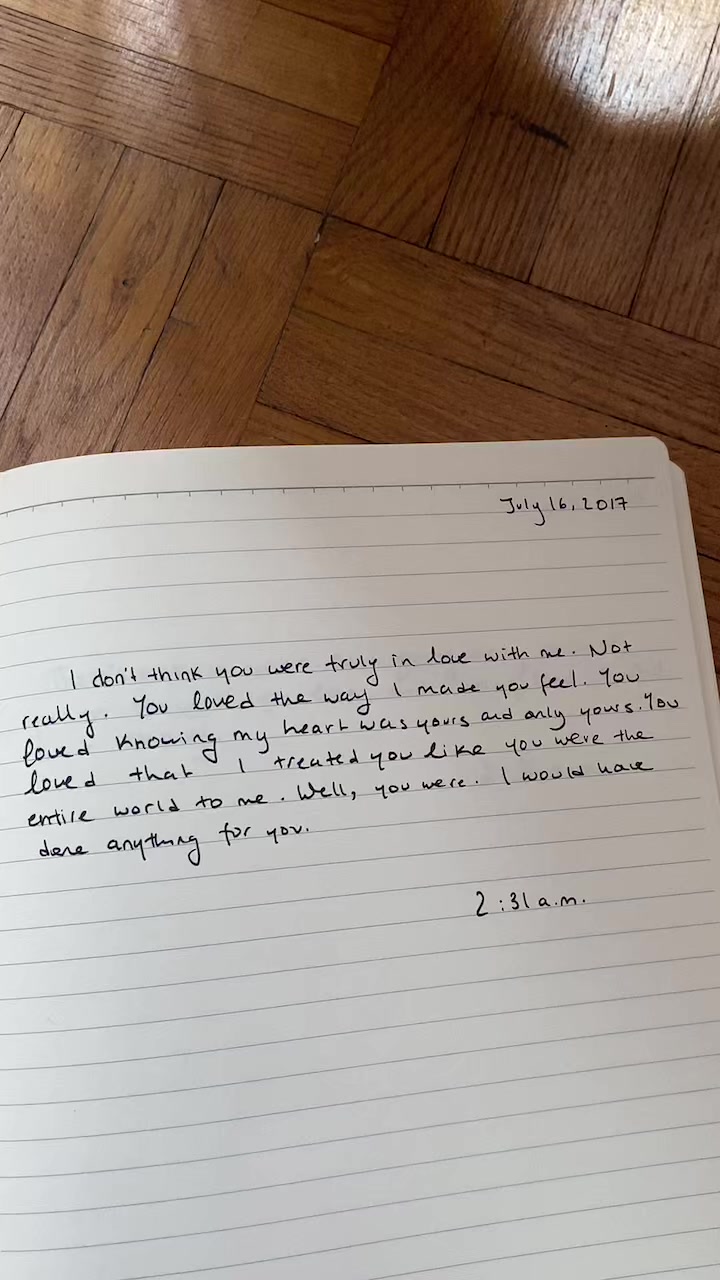 July 16, 2017
I don't think you were truly in love with me. Not
really. You loved the way I made you feel. You
loved knowing my heart was yours and only yours. You
loved that I treated you like you were the
entire world to me. Well, you were. I would have
done anything for you.
2:31 a.m.